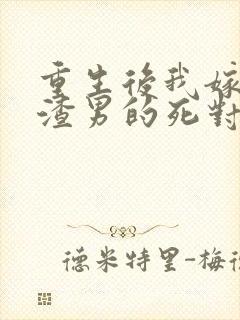 重生後我嫁
渣男的死對
德米特里-梅德